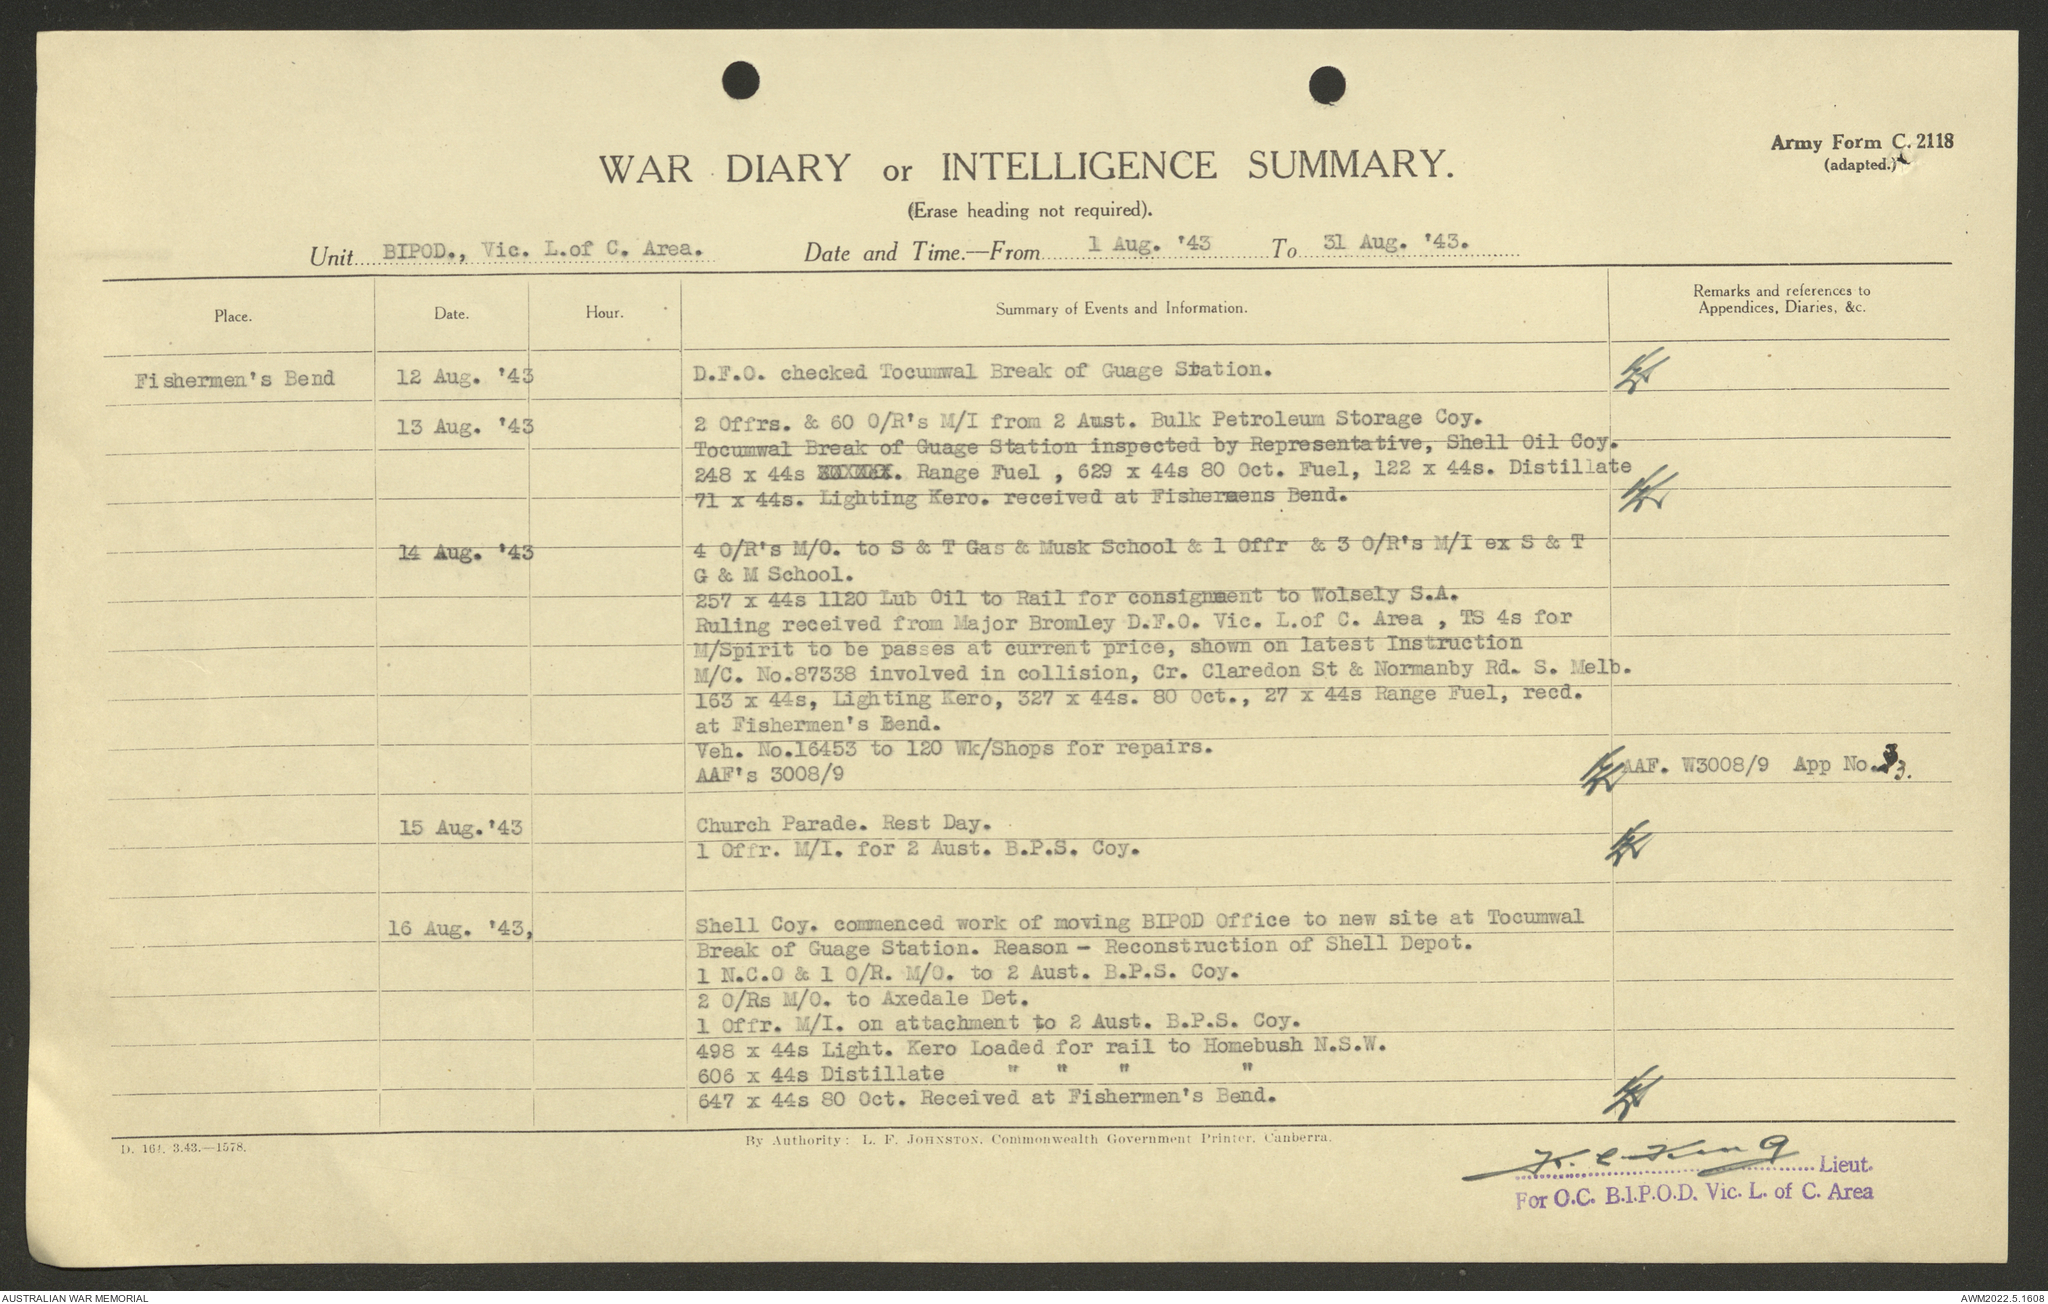 Army Form C. 2118
(adapted.)
WAR DIARY or INTELLIGENCE SUMMARY.
(Erase heading not required).
Unit BIPOD., Vic. L.of C. Area. Date and Time.—From 1 Aug. '43 To 31 Aug. '43.
Place. Date. Hour. Summary of Events and Information. Remarks and references to
Appendices, Diaries, &c.
Fishermen's Bend 12 Aug. '43 D.F.O. checked Tocumwal Break of Guage Station.
13 Aug. '43 2 Offrs. & 60 O/R's M/I from 2 Aust. Bulk Petroleum Storage Coy.
Tocumwal Break of Guage Station inspected by Representative, Shell Oil Coy.
248 x 44s Range Fuel , 629 x 44s 80 Oct. Fuel, 122 x 44s. Distillate
71 x 44s. Lighting Kero. received at Fishermens Bend.
14 Aug. '43 4 O/R's M/O. to S & T Gas & Musk School & 1 Offr & 3 O/R's M/I ex S & T
G & M School.
257 x 44s 1120 Lub Oil to Rail for consignment to Wolsely S.A.
Ruling received from Major Bromley D.F.O. Vic. L.of C. Area , TS 4s for
M/Spirit to be passes at current price, shown on latest Instruction
M/C. No.87338 involved in collision, Cr. Claredon St & Normanby Rd. S. Melb.
163 x 44s, Lighting Kero, 327 x 44s. 80 Oct., 27 x 44s Range Fuel, recd.
at Fishermen's Bend.
Veh. No.16453 to 120 Wk/Shops for repairs.
AAF's 3008/9 AAF. W3008/9 App No. 3.
15 Aug.'43 Church Parade. Rest Day.
1 Offr. M/I. for 2 Aust. B.P.S. Coy.
16 Aug. '43, Shell Coy. commenced work of moving BIPOD Office to new site at Tocumwal
Break of Guage Station. Reason - Reconstruction of Shell Depot.
1 N.C.O & 1 O/R. M/O. to 2 Aust. B.P.S. Coy.
2 O/Rs M/O. to Axedale Det.
1 Offr. M/I. on attachment to 2 Aust. B.P.S. Coy.
498 x 44s Light. Kero Loaded for rail to Homebush N.S.W.
606 x 44s Distillate " " " "
647 x 44s 80 Oct. Received at Fishermen's Bend.
D. 164. 3.43.—1578. By Authority: L. F. JOHNSTON, Commonwealth Government Printer, Canberra.
K. C King Lieut.
For O.C. B.I.P.O.D. Vic. L. of C. Area
AUSTRALIAN WAR MEMORIAL AWM2022.5.1608